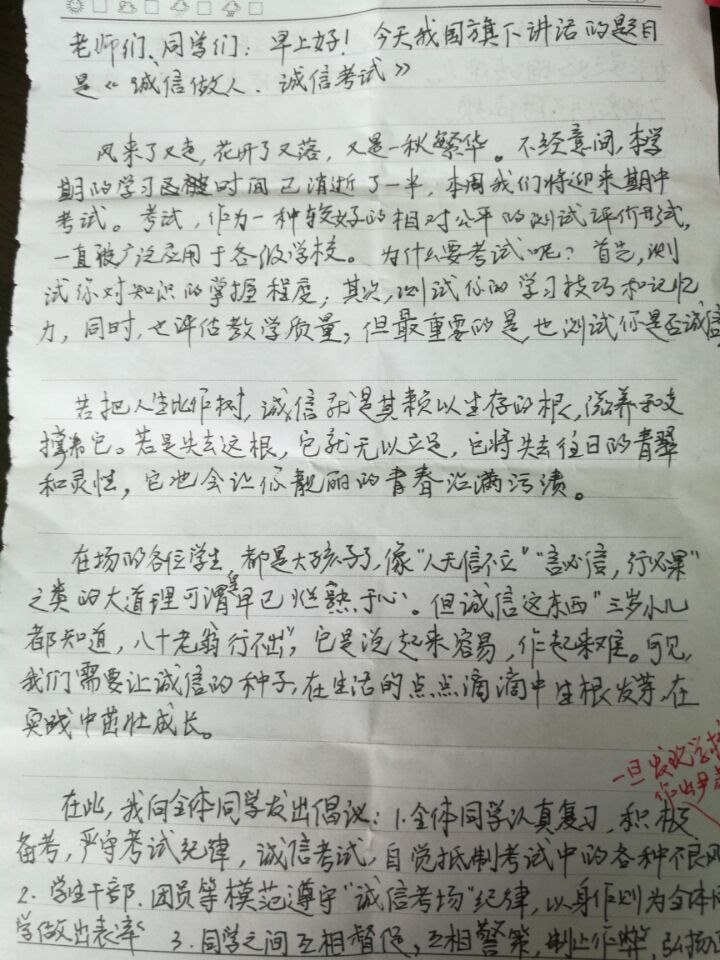 老师们、同学们：早上好！今天我国旗下讲话的题目
是《诚信做人、诚信考试》
风来了又走，花开了又落，又是一秋繁华。不经意间，本学
期的学习已被时间已消逝了一半，本周我们将迎来期中
考试。考试，作为一种较好的相对公平的测试评价形式，
一直被广泛应用于各级学校。为什么要考试呢？首先，测
试你对知识的掌握程度，其次，测试你的学习技巧和记忆
力，同时，也评估教学质量，但最重要的是，也测试你是否诚信
若把人生比作树，诚信就是其赖以生存的根，滋养和支
撑着它。若是失去这根，它就无以立足，它将失去往日的青翠
和灵性，它也会让你靓丽的青春沾满污渍。
在场的各位学生，都是大孩子了，像"人无信不立""言必信，行必果"
之类的大道理可谓是早已烂熟于心。但诚信这东西"三岁小儿
都知道，八十老翁行不出"，它是说起来容易，作起来难。可见，
我们需要让诚信的种子，在生活的点点滴滴中生根发芽，在
实践中茁壮成长。
一旦发现学校
作出严
在此，我向全体同学发出倡议：1.全体同学认真复习，积极
备考，严守考试纪律，诚信考试，自觉抵制考试中的各种不良风
2.学生干部、团员等模范遵守"诚信考场"纪律，以身作则为全体同
学做出表率 3.同学之间互相督促，互相警策，制止作弊，弘扬